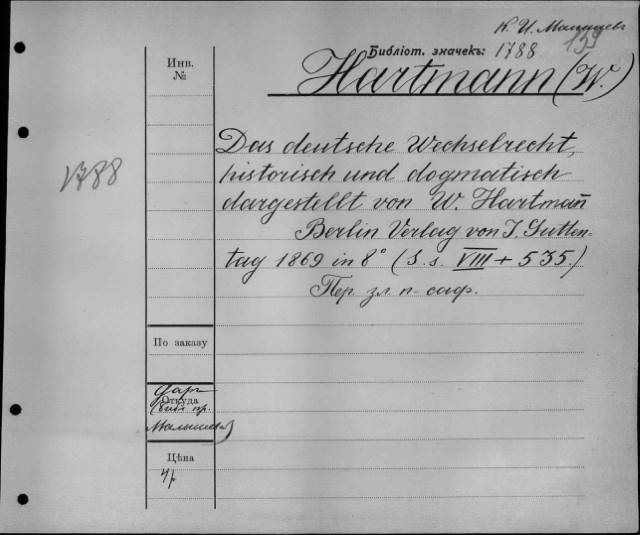 К. И. Малышев
Библіот. значекъ: 1788. 159
Hartmann (W.)
Инв.
№
1788
Das deutsche Wechselrecht,
historisch und dogmatisch
dargestellt von W. Hartmañ
Berlin Verlag von J. Gutten-
tag 1869 in 8° (S. s. VIII + 535.)
Пер. зл. п- саф.
По заказу
Даръ
Откуда
(библ. пр.
Малышева)
Цѣна
4р